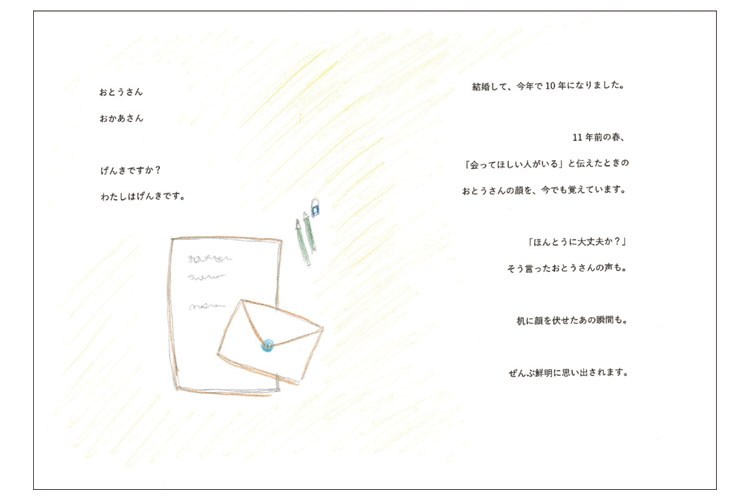 おとうさん
おかあさん
げんきですか？
わたしはげんきです。
結婚して、今年で10年になりました。
11年前の春、
「会ってほしい人がいる」と伝えたときの
おとうさんの顔を、今でも覚えています。
「ほんとうに大丈夫か？」
そう言ったおとうさんの声も。
机に顔を伏せたあの瞬間も。
ぜんぶ鮮明に思い出されます。